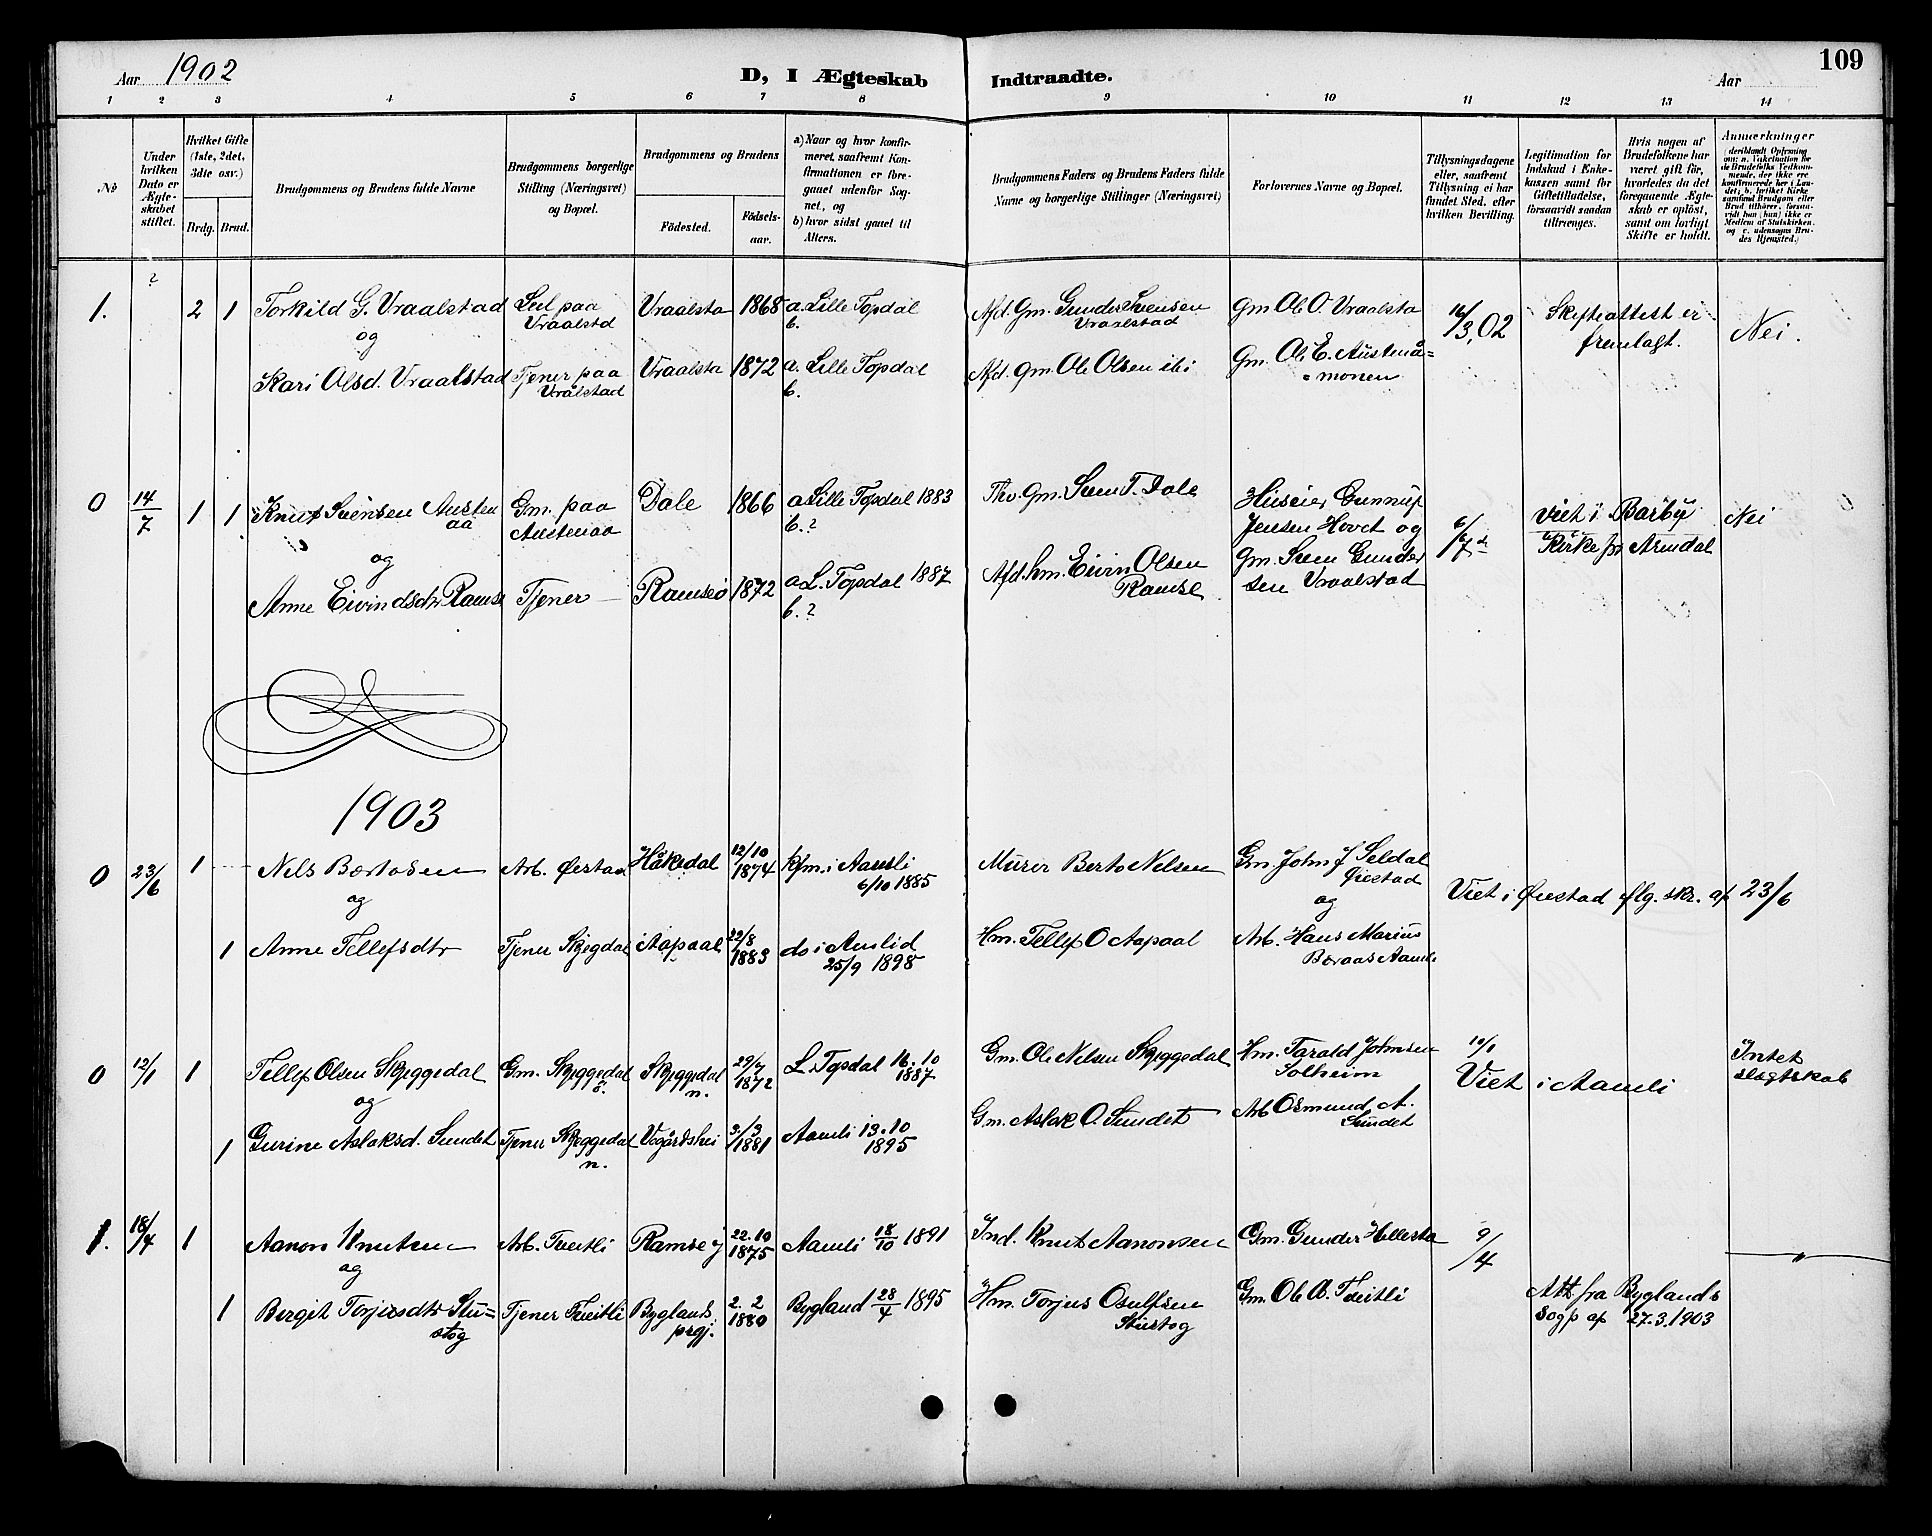 109
Aar 1902
D, I Ægteskab Indtraadte.
Aar
1 2 3 4 5 6 7 8 9 10 11 12 13 14
No
Under hvilken Dato er Ægteskabet stiftet.
Hvilket Gifte (1ste, 2det, 3dte osv.)
Brdg. Brud.
Brudgommens og Brudens fulde Navne
Brudgommens borgerlige Stilling (Næringsvei) og Bopæl.
Brudgommens og Brudens
Fødested.
Fødselsaar.
a) Naar og hvor konfirmeret, saafremt Konfirmationen er foregaaet udenfor Sognet, og
b) hvor sidst gaaet til Alters.
Brudgommens Faders og Brudens Faders fulde Navne og borgerlige Stillinger (Næringsvei)
Forlovernes Navne og Bopæl.
Tillysningsdagene eller, saafremt Tillysning ei har fundet Sted, efter hvilken Bevilling.
Legitimation for Indskud i Enkekassen samt for Giftetilladelse, forsaavidt saadan tiltrænges.
Hvis nogen af Brudefolkene har været gift før, hvorledes da det foregaaende Ægteskab er opløst, samt om lovligt Skifte er holdt.
Anmærkninger (deriblandt Oplysning om: a. Vaksination for de Brudefolks Vedkommende, der ikke ere konfirmerede her i Landet; b. hvilket Kirkesamfund Brudgom eller Brud tilhører, forsaavidt han (hun) ikke er Medlem af Statskirken, og c. udensogns Brudes Hjemsted.)
?
1. 2 1 Torkild G. Vraalstad Sel. paa Vraalstd Vraalsta 1868 a. Lille Topdal b. Afd. Gm. Gunder Svensen Vraalstad Gm Ole O. Vraalsta 16/3,02 Skifteattest er fremlagt. Nei.
og
Kari Olsd. Vraalstad Tjener paa Vrålstad Vraalsta 1872 a. Lille Topdal b. Afd. Gm. Ole Olsen ibi Gm. Ole E. Austenå=monen
0 14/7 1 1 Knut Svensen Austenaa Gm. paa Austenaa Dale 1866 a Lille Topdal 1883 b.? Gm. Sven T. Dale Huseier Gunnuf Jensen Hovet og 6/7 Viet i Barby Kirke pr Arendal Nei
og
Anne Eivindsdtr Ramse Tjener Ramseø 1872 a L. Topdal 1887 b.? Afd. hm. Eivin Olsen Ramse Gm. Sven Gundersen Vraalstad
1903
0 23/6 1 Nels Bertosen Arb. Øiestad Håkedal 12/10 1874 kfm. i Aamli 6/10 1885 Murer Berto Nelsen Gm. John J Seldal Øiestad Viet i Øiestad flg. skr. af 23/6
og og
1 Anne Tellefsdtr Tjener Skjegdal Aapaal 22/8 1883 do i Amlid 25/9 1898 Hm. Tellef O Aapaal Arb. Hans Marius Beraas Aamli
0 12/1 1 Tellef Olsen Skjeggedal Gm. Skjeggedal ö. Skjeggedal n. 29/7 1872 L. Topdal 16.10 1887 Gm. Ole Nelsen Skjeggedal Hm. Tarald Johnsen Solheim 10/1 Viet i Aamli Intet slægtskab
og
1 Gurine Aslaksd. Sundet Tjener Skjeggedal n. Vegårdshei 3/3 1881 Aamli 13.10 1895 Gm. Aslak O. Sundet Arb Osmund A. Sundet
1. 18/4 1 Aanon Knutsen Arb. Tveitli Ramse y 22.10 1875 Aamli 18/10 1891 Ind. Knut Aanonsen Gm. Gunder Hillestad 9/4 "
og
1 Bergit Torjusdtr Stu=stog Tjener Tveitli Byglands prgj. 2.2 1880 Bygland 28/4 1895 Hm. Torjus Osulfsen Stustog Gm. Ole A. Tveitli Att. fra Byglands Sogp af 27.3.1903